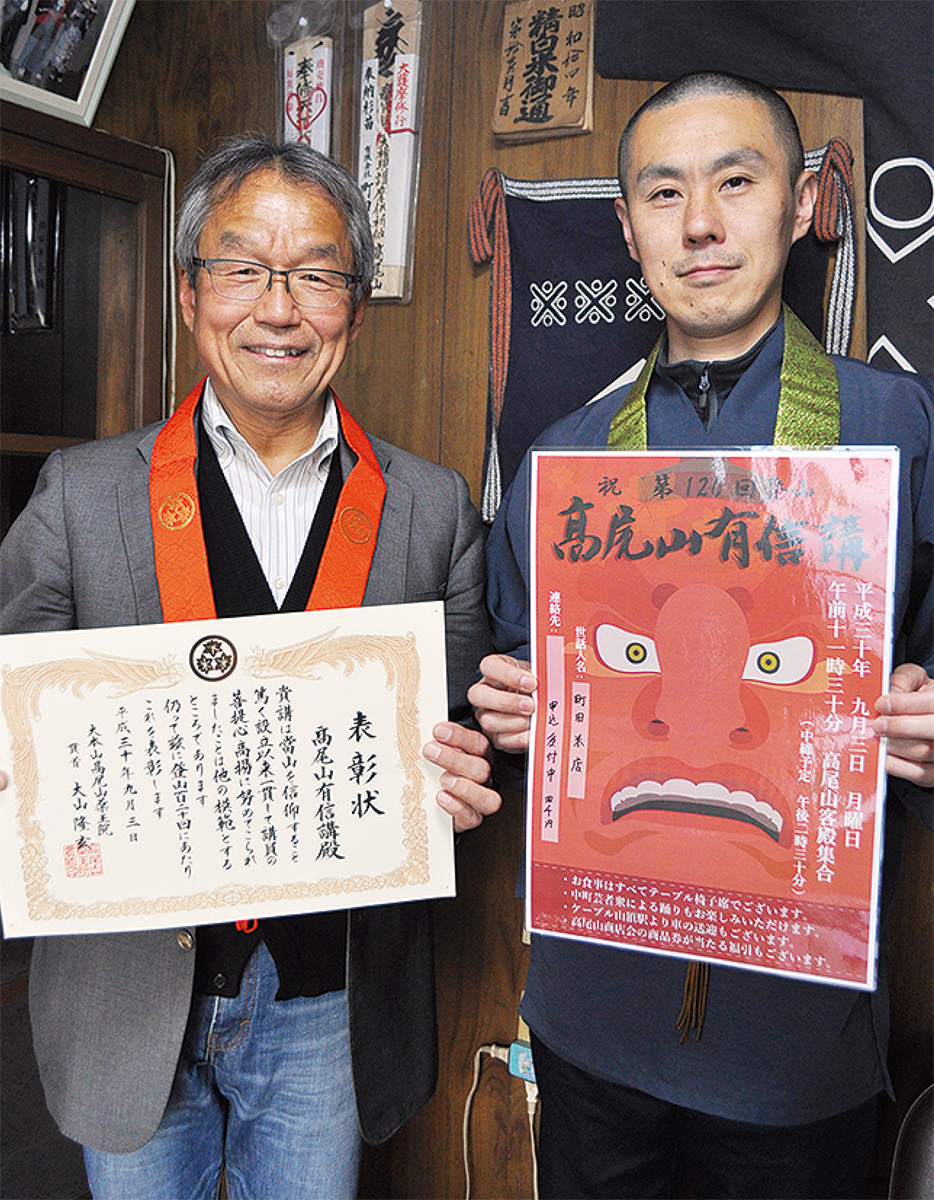 昭和拾四年
精白米御通
奉納杉苗
大護摩修行
表彰状
高尾山有信講殿
貴講は當山を信仰すること
篤く設立以来一貫して講員の
菩提心高揚に努めてこられ
ましたことは他の模範とする
ところであります
仍って茲に登山百二十回にあたり
これを表彰します
平成三十年九月三日
大本山高尾山薬王院
貫首 大山隆玄
祝 第120回登山
高尾山有信講
平成三十年 九月三日 月曜日
午前十一時三十分 高尾山客殿集合
(中締予定 午後二時三十分)
世話人名: 町田米店
連絡先: 申込受付中 四千円
・お食事はすべてテーブル椅子席でございます。
・中町芸者衆による踊りもお楽しみいただけます。
・ケーブル山頂駅より車の送迎もございます。
・高尾山商店会の商品券が当たる福引もございます。